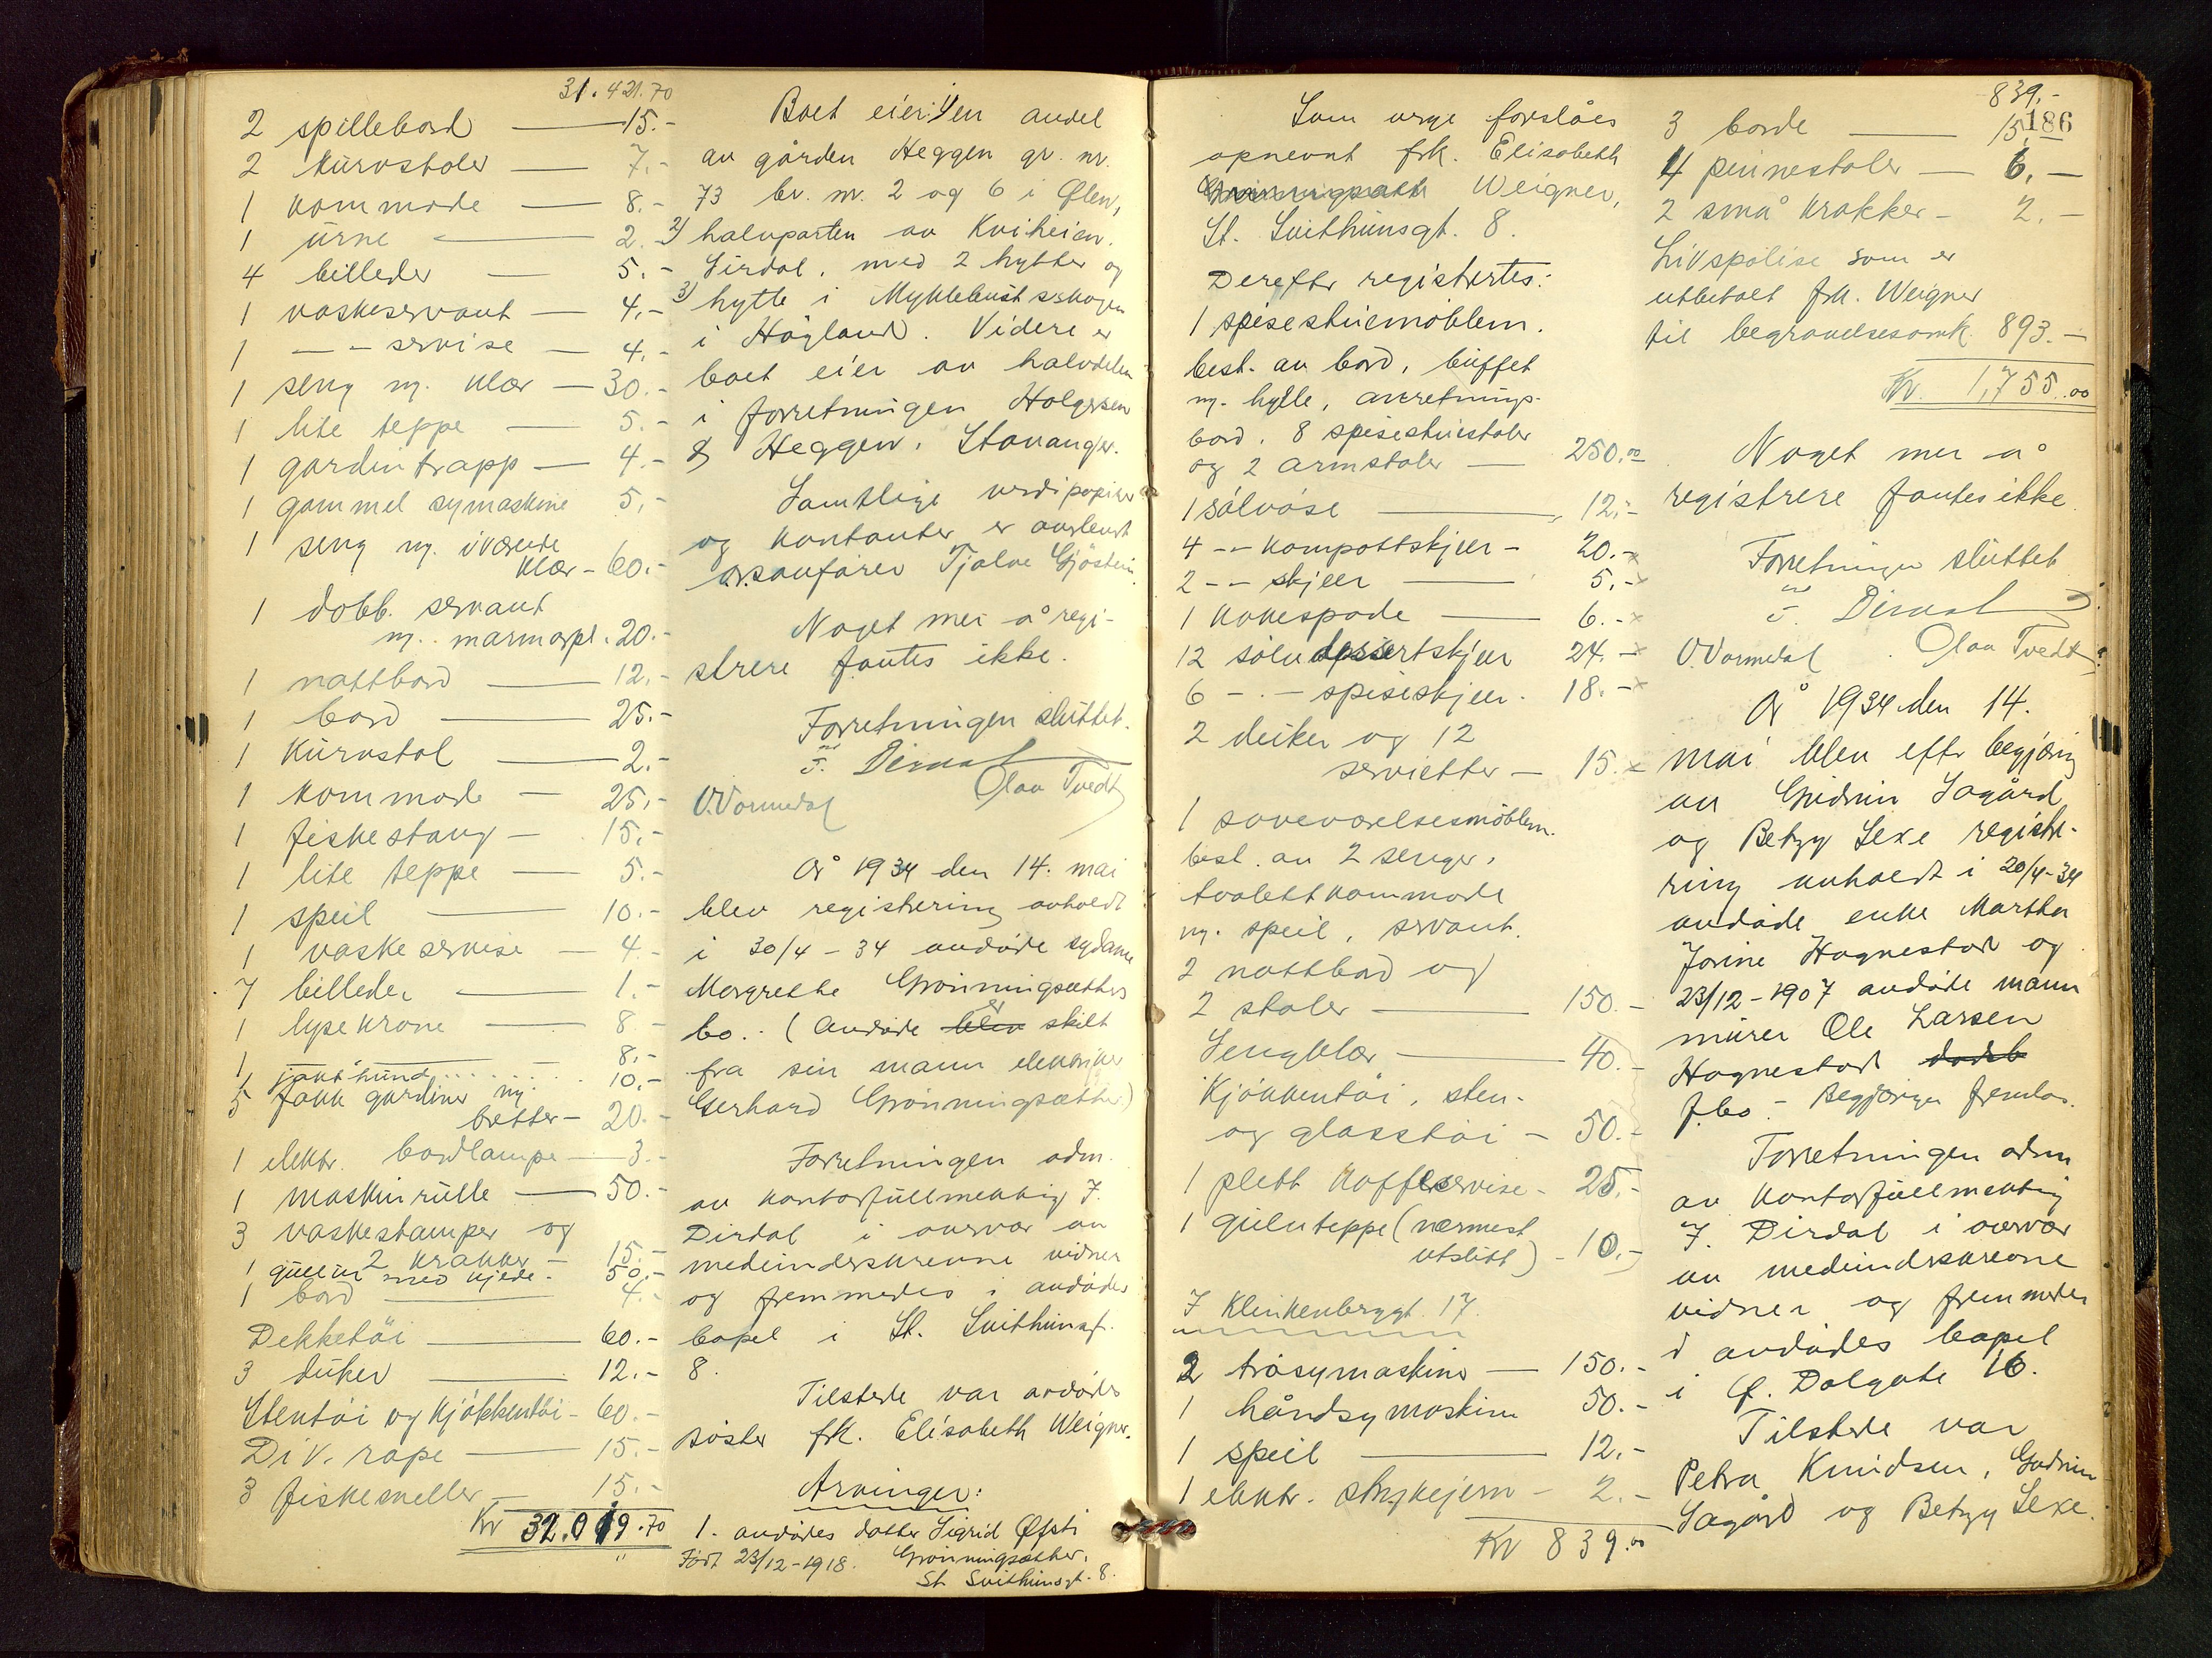 31.421.70
2 spillebord — 15.-
2 kurvstoler — 7.-
1 kommode — 8.-
1 urne — 2.-
4 billeder — 5.-
1 vaskeservant — 4.-
1 — — servise — 4.-
1 seng m. klær — 30.-
1 lite teppe — 5.-
1 gardintrapp — 4.-
1 gammel symaskine 5.-
1 seng m. iværende
klær — 60.-
1 dobb. servant
m. marmorpl. 20.-
1 nattbord — 12.-
1 bord — 25.-
1 kurvstol — 2.-
1 kommode — 25.-
1 fiskestang — 15.-
1 lite teppe — 5.-
1 speil — 10.-
1 vaskeservise — 4.-
7 billeder — 1.-
1 lysekrone — 8.-
1 — 8.-
1 jakthund 10.-
5 fakk gardiner m.
bretter — 20.-
1 elektr. bordlampe — 3.-
1 maskinrulle — 50.-
3 vaskestamper og
2 krakker — 15.-
1 gullur med kjede. 50.-
1 bord — 4.-
Dekketöi — 60.-
3 duker — 12.-
Stentöi og kjökkentöi — 60.-
Div. rape — 15.-
3 fiskesneller — 15.-
Kr 32.019.70
Boet eier: 1/ en andel
av gården Heggen gr. nr.
73 br. nr. 2 og 6 i Ølen,
2/ halvparten av Kviheien.
Sirdal, med 2 hytter og
3/ hytte i Myklebustskogen
i Högland. Videre er
boet eier av halvdelen
i forretningen Holgersen
& Heggen, Stavanger.
Samtlige verdipapirer
og kontanter er avlevert
orsakförer Tjalve Gjöstein.
Noget mer å regi-
strere fantes ikke.
Forretningen sluttet.
J. Dirdal
V. Vormedal Olav Tvedt
År 1934 den 14. mai
blev registrering avholdt
i 30/4 - 34 avdöde sydame
Margrethe Grönningsætters
bo. (Avdöde blev er skilt
fra sin mann elektriker
Gerhard Grönningsætter)
Forretningen adm.
av kontorfullmektig J.
Dirdal i overvær av
medunderskrevne vidner
og fremmedes i avdödes
bopel i St. Svithunsgt.
8.
Tilstede var avdödes
söster frk. Elisabeth Weigner.
Arvinger:
1. avdödes datter Sigrid Øfsti
Født 23/12-1918. Grönningsætter,
St. Svithunsgt. 8.
Som verge forslåes
opnevnt frk. Elisabeth
Weigner,
St. Svithunsgt. 8.
Derefter registrertes:
1 spisestuemöblem.
best. av bord, buffet
m. hylle, anretnings-
bord, 8 spisestuestoler
og 2 armstoler — 250.00
1 sölvöse — 12.-
4 -- kompottskjeer - 20.- x
2 -- skjeer — 5.- x
1 kakespade — 6.- x
12 sölv dessertskjeer 24.- x
6 - . - spiseskjeer. 18.- x
2 duker og 12
servietter — 15.- x
1 soveværelsesmöblem.
best. av 2 senger,
toalettkommode
m. speil, servant.
2 nattbord og
2 stoler — 150.-
Sengklær — 40.-
Kjökkentöi, sten-
og glasstöi — 50.-
1 plett kaffeservise - 25.-
1 gulvteppe (nærmest
utslitt) - 10.-
I Klinkenberggt. 17.
2 tråsymaskiner — 150.-
1 håndsymaskin 50.-
1 speil — 12.-
1 elektr. strykejern — 2.-
Kr 839.00
839.-
186
3 borde — 15.-
4 pinnestoler — 6.-
2 små krakker - 2.-
Livspolise som er
utbetalt frk. Weigner
til begravelsesomk. 893.-
Kr. 1,755.00
Noget mer å
registrere fantes ikke.
Forretningen sluttet
J. Dirdal
V. Vormedal Olav Tvedt
År 1934 den 14.
mai blev efter begjæring
av Gudrun Sagård
og Betzy Lexe registre-
ring avholdt i 20/4-34
avdöde enke Martha
Jorine Hognestad og
23/12-1907 avdöde mann
murer Ole Larsen
Hognestad
f.bo. - Begjæringen fremlas.
Forretningen adm
av kontorfullmektig
J. Dirdal i overvær
av medundskrevne
vidner og fremmedes
i avdödes bopel
i Ø. Dalgate 16.
Tilstede var
Petra Knudsen, Gudrun
Sagård og Betzy Lexe.